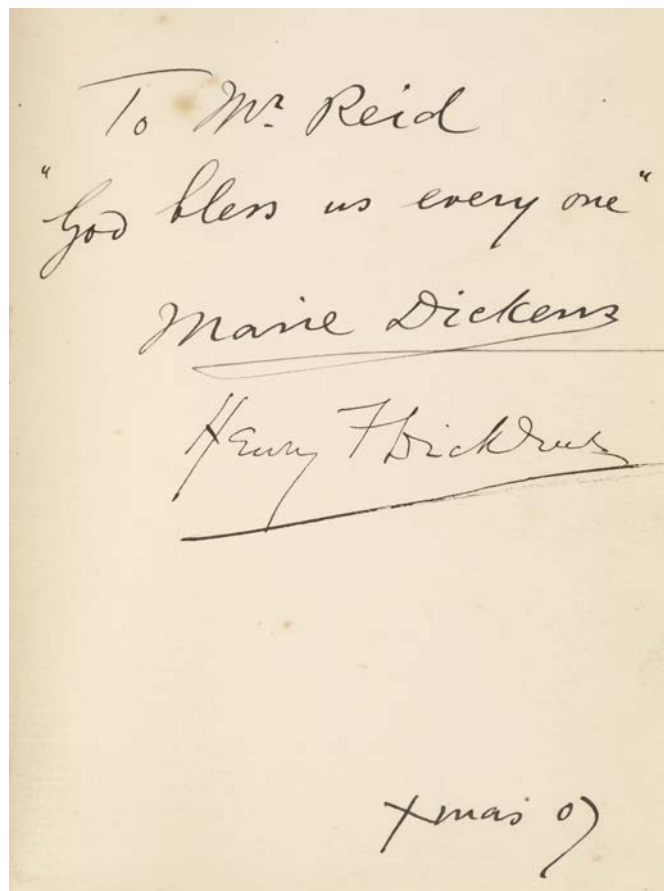 To Mr. Reid
"God bless us every one"
Marie Dickens
Henry F Dickens
Xmas 07